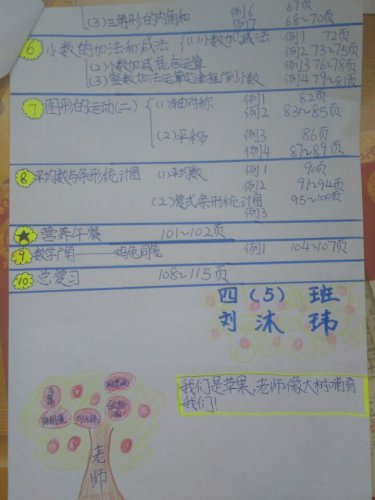 (3)三角形的内角和 例6 67页
例7 68~70页
6 小数的加法和减法 (1)小数加减法 例1 72页
例2 73~75页
(2)小数加减混合运算 例3 76~78页
(3)整数加法运算定律推广到小数 例4 79~81页
7 图形的运动(二) (1)轴对称 例1 82页
例2 83~85页
(2)平移 例3 86页
例4 87~89页
8 平均数与条形统计图 (1)平均数 例1 90页
例2 91~94页
(2)复式条形统计图 例3 95~100页
★ 营养午餐 101~102页
9 数学广角 鸡兔同笼 例1 104~107页
10 总复习 108~115页
四(5)班
刘沐玮
我们是苹果,老师像大树哺育
我们!
老师